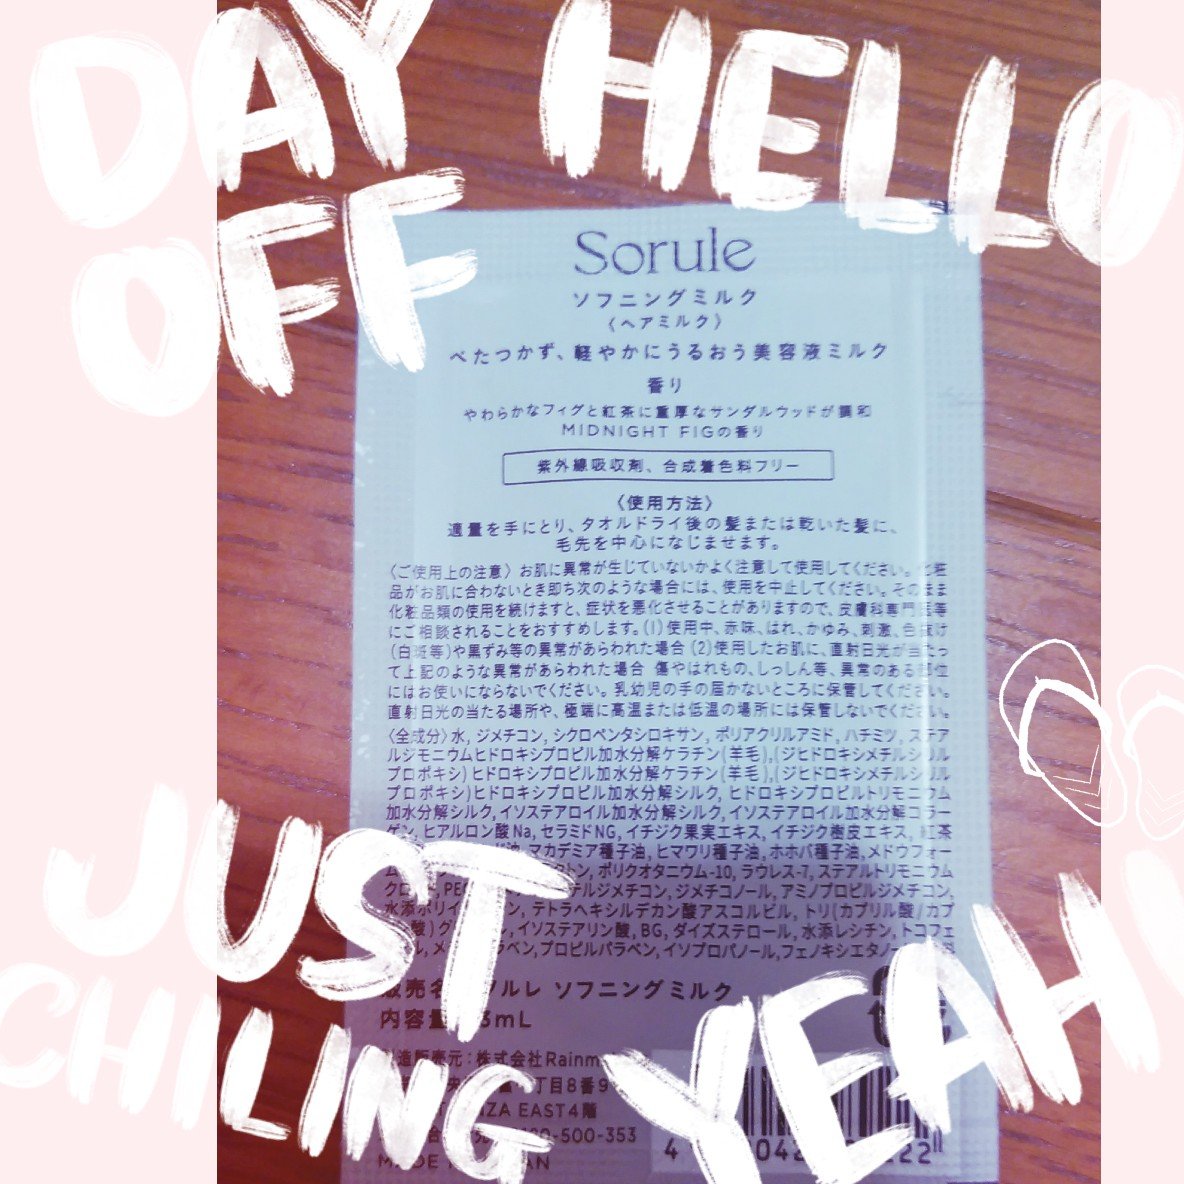 DAY
OFF
HELLO
Sorule
ソフニングミルク
〈ヘアミルク〉
べたつかず、軽やかにうるおう美容液ミルク
香り
やわらかなフィグと紅茶に重厚なサンダルウッドが調和
MIDNIGHT FIGの香り
紫外線吸収剤、合成着色料フリー
〈使用方法〉
適量を手にとり、タオルドライ後の髪または乾いた髪に、
毛先を中心になじませます。
〈ご使用上の注意〉お肌に異常が生じていないかよく注意して使用してください。化粧
品がお肌に合わないとき即ち次のような場合には、使用を中止してください。そのまま
化粧品類の使用を続けますと、症状を悪化させることがありますので、皮膚科専門医等
にご相談されることをおすすめします。(1)使用中、赤味、はれ、かゆみ、刺激、色抜け
(白斑等)や黒ずみ等の異常があらわれた場合(2)使用したお肌に、直射日光が当たっ
て上記のような異常があらわれた場合 傷やはれもの、しっしん等、異常のある部位
にはお使いにならないでください。乳幼児の手の届かないところに保管してください。
直射日光の当たる場所や、極端に高温または低温の場所には保管しないでください。
〈全成分〉水, ジメチコン, シクロペンタシロキサン, ポリアクリルアミド, ハチミツ, ステア
ルジモニウムヒドロキシプロピル加水分解ケラチン(羊毛),(ジヒドロキシメチルシリル
プロポキシ)ヒドロキシプロピル加水分解ケラチン(羊毛),(ジヒドロキシメチルシリル
プロポキシ)ヒドロキシプロピル加水分解シルク, ヒドロキシプロピルトリモニウム
加水分解シルク, イソステアロイル加水分解シルク, イソステアロイル加水分解コラー
ゲン, ヒアルロン酸Na, セラミドNG, イチジク果実エキス, イチジク樹皮エキス, 紅茶
マカデミア種子油, ヒマワリ種子油, ホホバ種子油, メドウフォー
ポリクオタニウム-10, ラウレス-7, ステアルトリモニウム
ジメチコノール, アミノプロピルジメチコン,
テトラヘキシルデカン酸アスコルビル, トリ(カプリル酸/カプ
イソステアリン酸, BG, ダイズステロール, 水添レシチン, トコフェ
プロピルパラベン, イソプロパノール, フェノキシエタノール
販売名 ソルレ ソフニングミルク
内容量 3mL
製造販売元:株式会社
丁目8番9
EAST4階
-500-353
JUST
CHILING
YEAH!